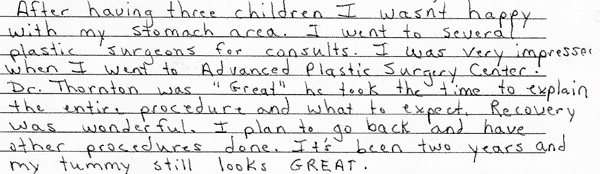 After having three children I wasn't happy
with my stomach area. I went to several
plastic surgeons for consults. I was very impressed
when I went to Advanced Plastic Surgery Center.
Dr. Thornton was "Great" he took the time to explain
the entire procedure and what to expect. Recovery
was wonderful. I plan to go back and have
other procedures done. It's been two years and
my tummy still looks GREAT.